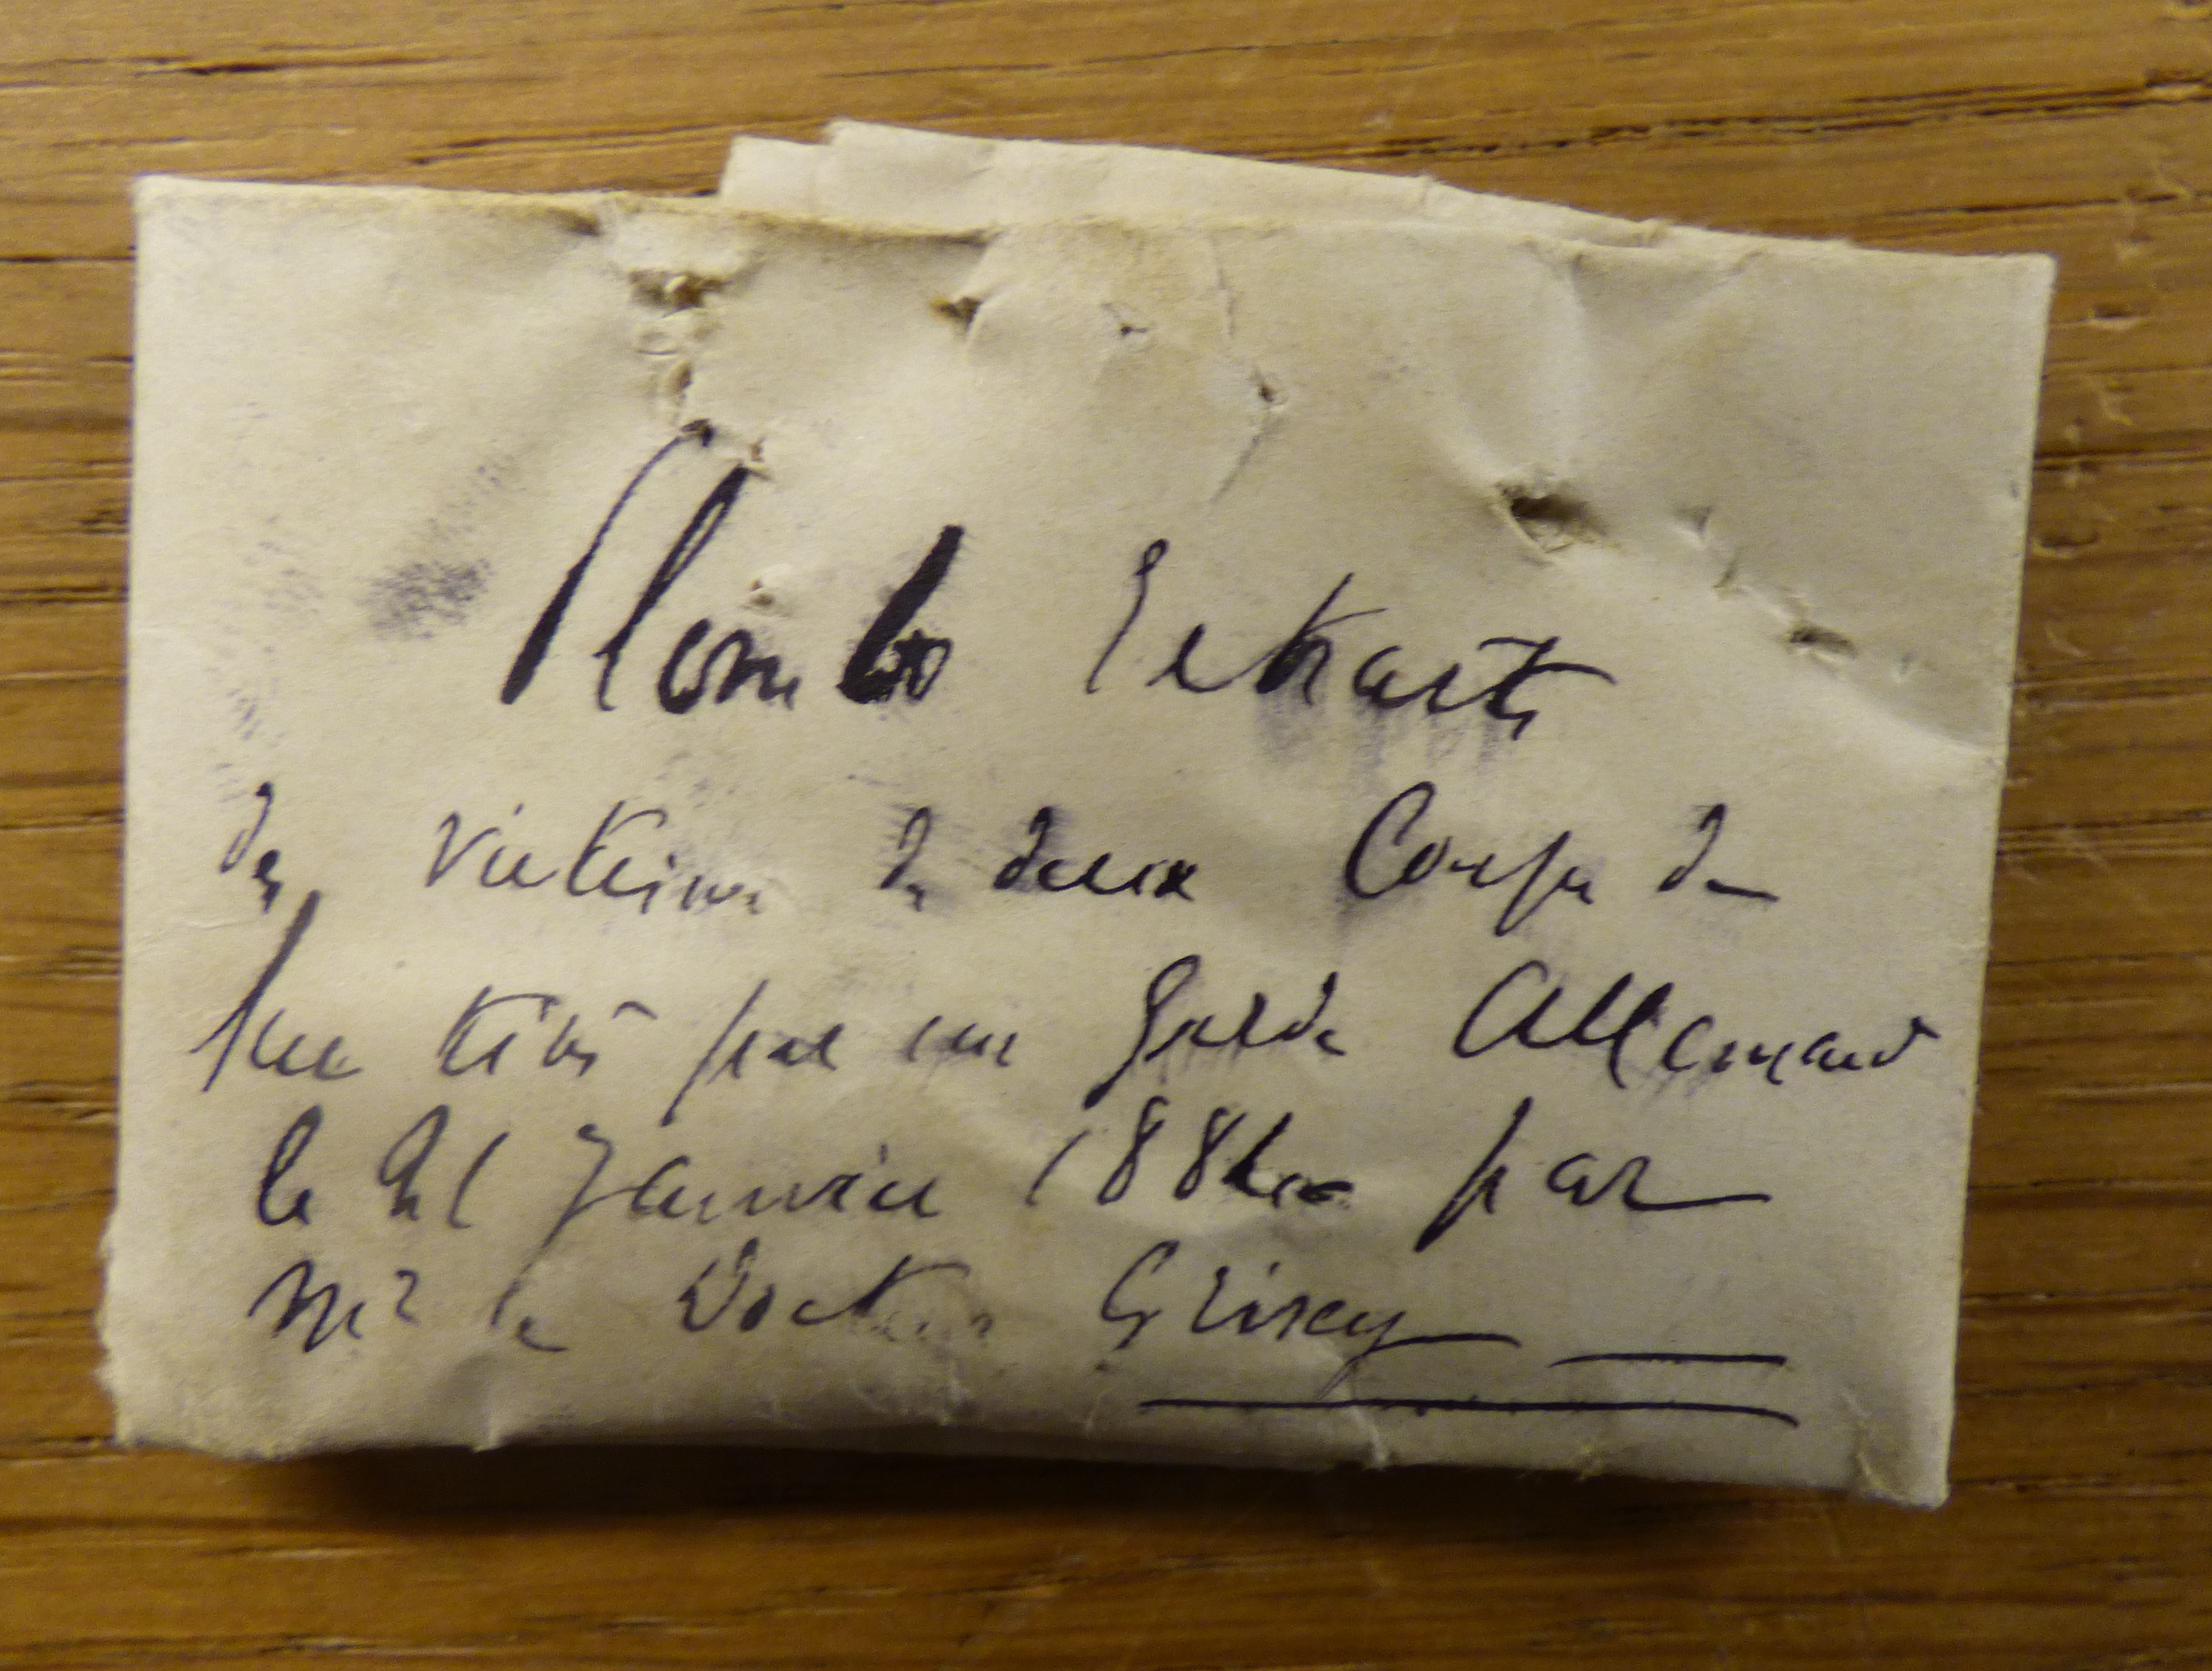 Plombs Extraits
des victimes de deux Coups de
feu tirés par un garde Allemand
le 21 Janvier 188 par
Mr le Docteur